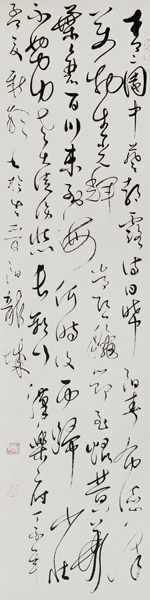 青々園中葵朝露待日晞陽春布德澤
萬物生光輝常恐秋節至焜黃華
葉衰百川東到海何時復西歸少壯
不努力老大徒傷悲長歌行漢樂府